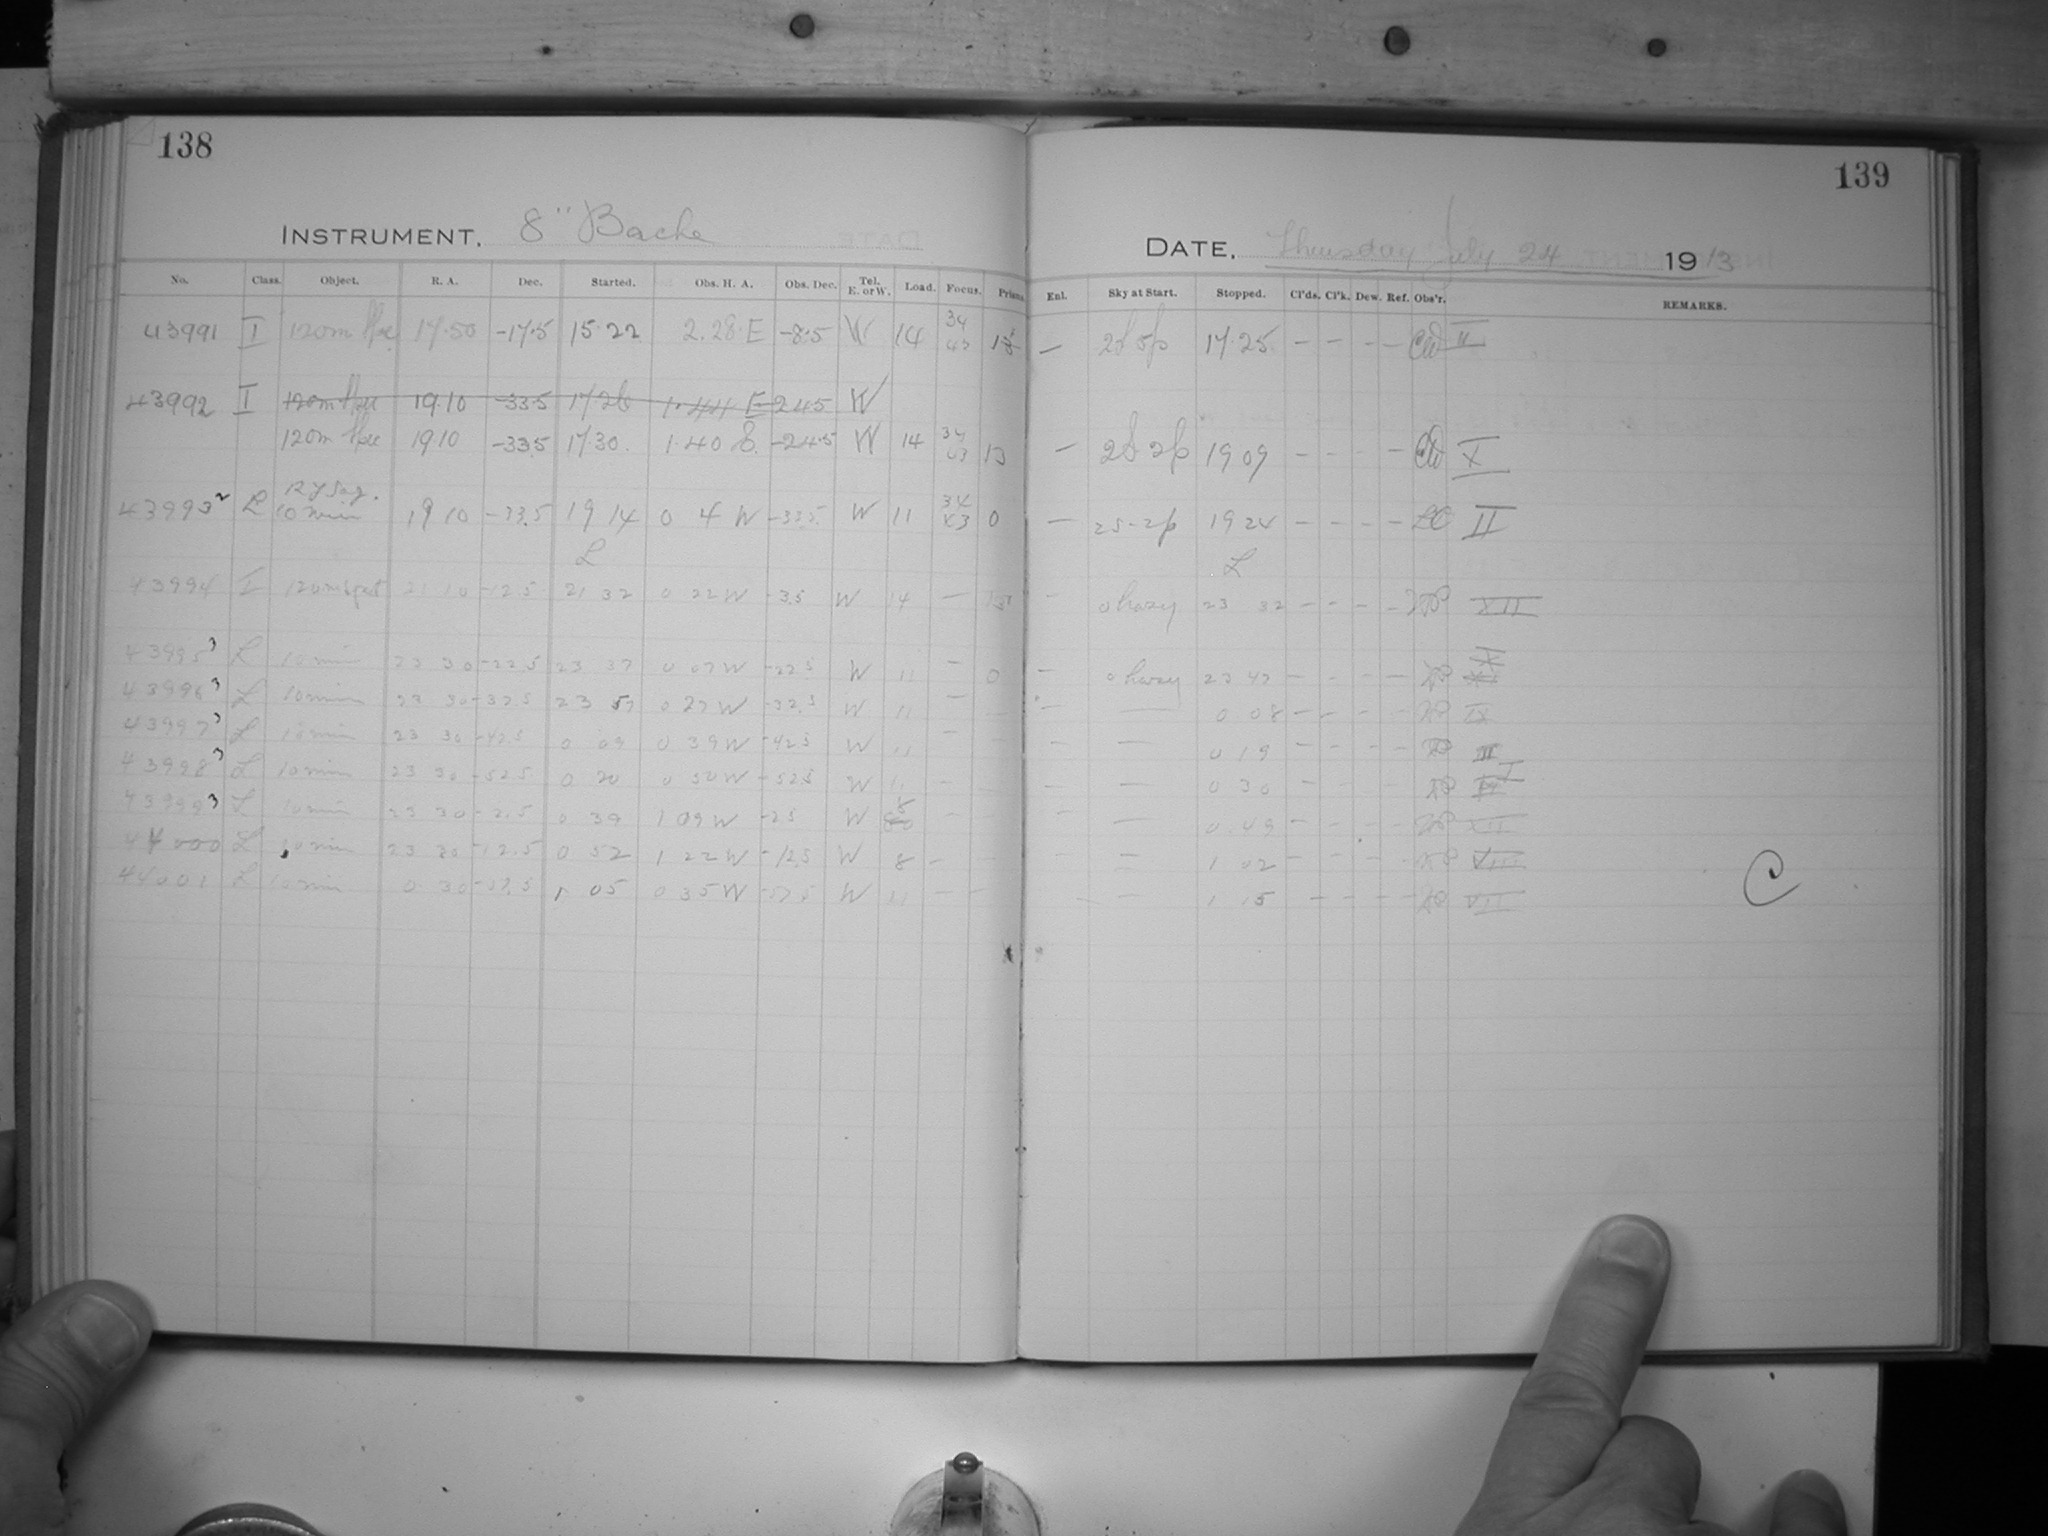 138
139
INSTRUMENT. 8" Bache
DATE. Thursday July 24 1913
No. Class. Object. R. A. Dec. Started. Obs. H. A. Obs. Dec. Tel. E. or W. Load. Focus. Prism. Enl. Sky at Start. Stopped. Cl'ds. Cl'k. Dew. Ref. Obs'r. REMARKS.
43991 I 120m 17.50 -17.5 15.22 2.28.E -8.5 W 14 34 43 — 17.25 – – – – CW II
43992 I 19.10 -33.5 17 26 1.44 E -24.5 W
120m 19 10 -33.5 17.30. 1.40 E. -24.5 W 14 34 43 13 — 19 09 – – – – CW X
43993 2 R RY Sag. 10 min 19 10 -33.5 19 14 0 4 W -33.5 W 11 34 43 0 — 2s-2p 19 24 – – – – LC II
L L
43994 I 120m 21 10 -12.5 21 32 0 22 W -3.5 W 14 — — 0 hazy 23 32 – – – – XII
43995 3 L 10 min 23 30 -22.5 23 37 0 07 W -22.5 W 11 — 0 — 0 hazy 23 47 – – – – X
43996 3 L 10 min 23 30 -32.5 23 57 0 27 W -32.5 W 11 — — — 0 08 – – – – IX
43997 3 L 10 min 23 30 -42.5 0 09 0 39 W -42.5 W 11 — — — 0 19 – – – – III
43998 3 L 10 min 23 30 -52.5 0 20 0 50 W -52.5 W 11 — — — 0 30 – – – – I
43999 3 L 10 min 23 30 -2.5 0 39 1 09 W -2.5 W 8 — — — 0 49 – – – – XII
44000 L 10 min 23 30 -12.5 0 52 1 22 W -12.5 W 8 — — — 1 02 – – – – VIII
44001 L 10 min 0 30 -57.5 1 05 0 35 W -57.5 W 11 — — — 1 15 – – – – VII
C